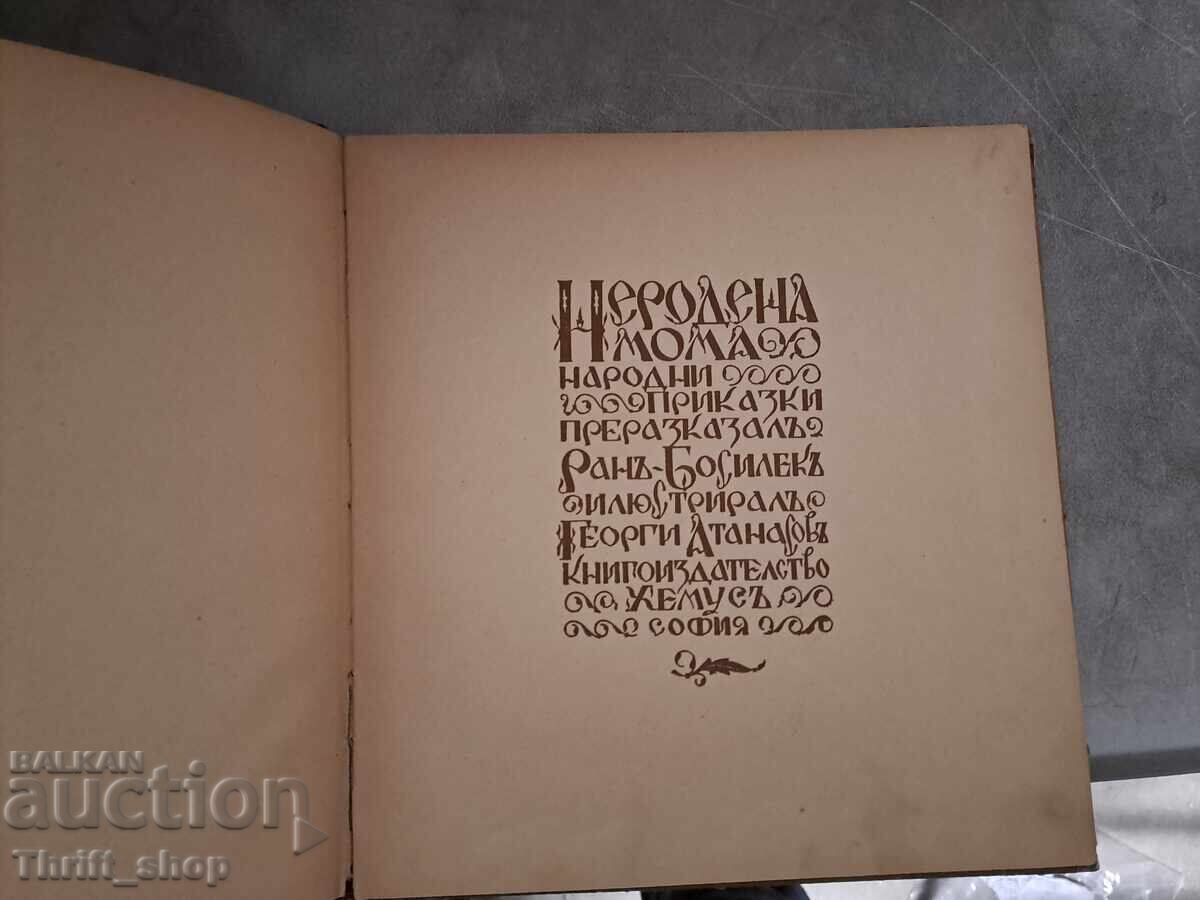 Неродена
мома
народни
приказки
преразказалъ
Ранъ-Босилекъ
илюстриралъ
Георги Атанасовъ
книгоиздателство
Хемусъ
София
BALKAN
auction
Thrift_shop